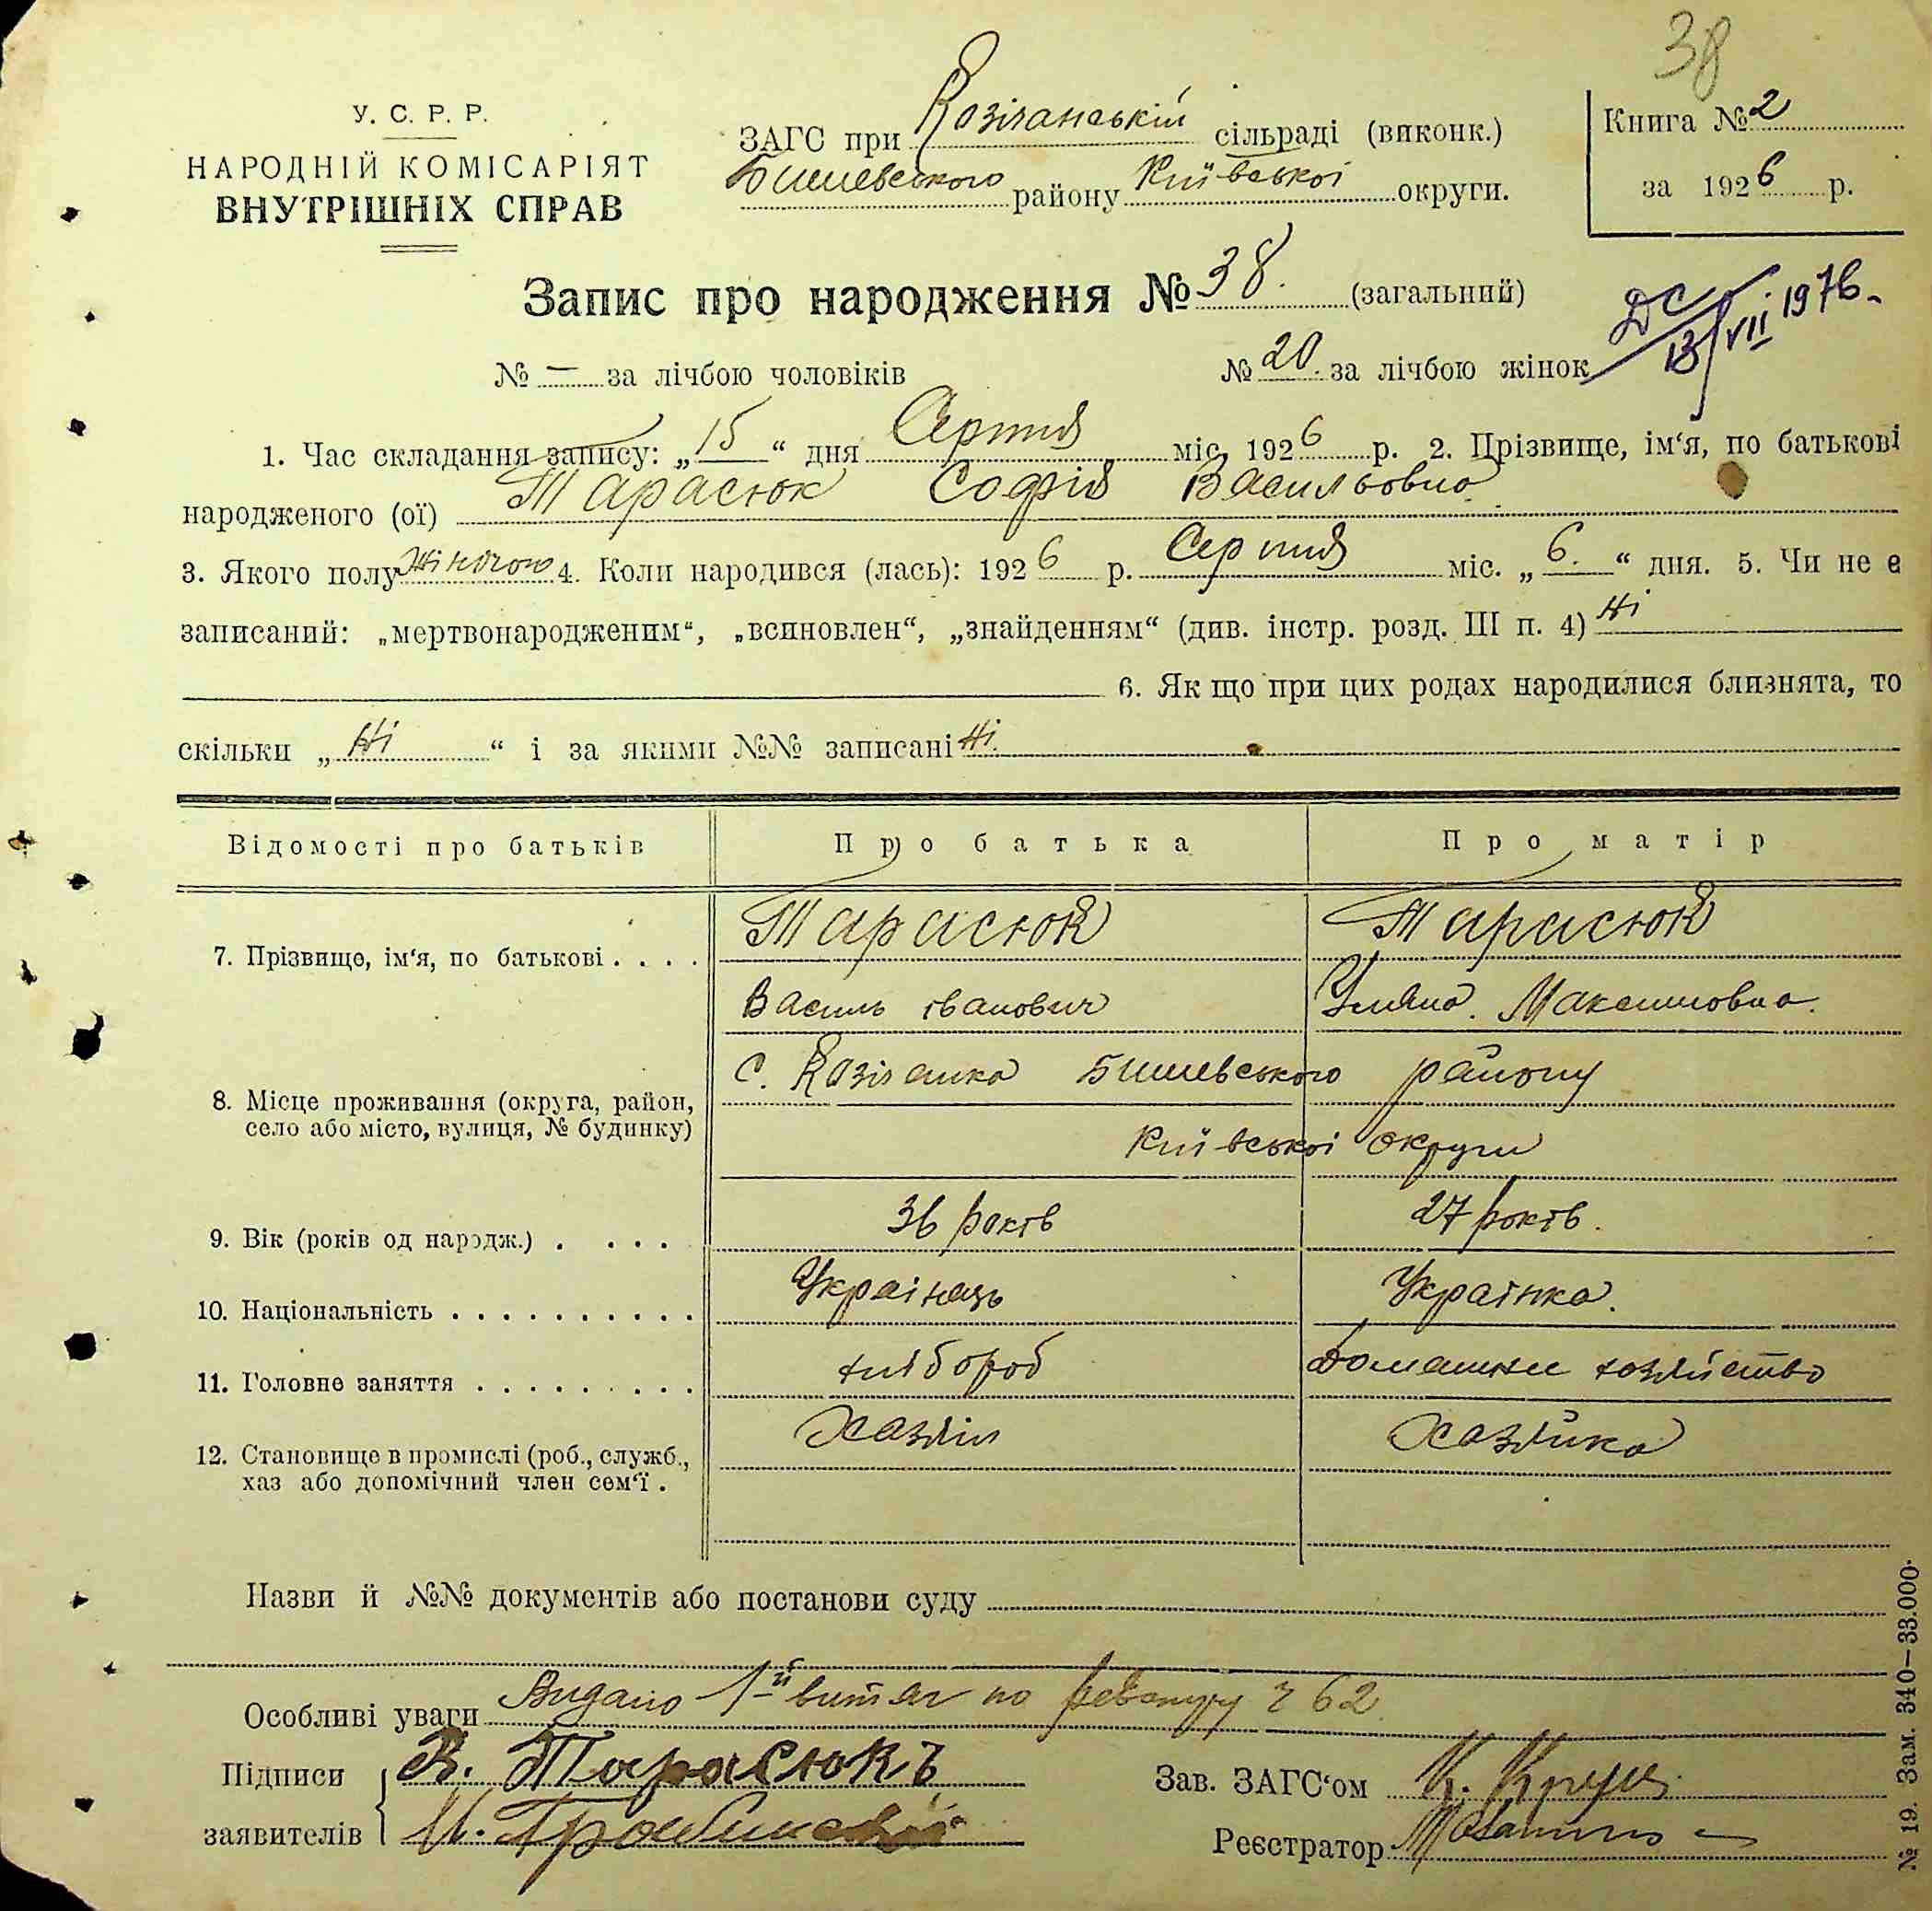 38
У. С. Р. Р.
НАРОДНІЙ КОМІСАРІЯТ
ВНУТРІШНІХ СПРАВ
ЗАГС при Козічанській сільраді (виконк.)
Бишевського району Київської округи.
Книга № 2
за 1926 р.
Запис про народження № 38. (загальний)
ДС 13/VII 1976.
№ — за лічбою чоловіків № 20. за лічбою жінок
1. Час складання запису: „15“ дня Серпня міс. 1926 р. 2. Прізвище, ім‘я, по батькові
народженого (ої) Тарасюк Софія Васильовна
3. Якого полу жіночого 4. Коли народився (лась): 1926 р. Серпня міс. „6.“ дня. 5. Чи не є
записаний: „мертвонародженим“, „всиновлен“, „знайденням“ (див. інстр. розд. III п. 4) Ні
6. Як що при цих родах народилися близнята, то
скільки „Ні“ і за якими №№ записані Ні.
Відомості про батьків Про батька Про матір
7. Прізвище, ім‘я, по батькові . . . . Тарасюк Тарасюк
Василь Іванович Уляна. Максимовна.
8. Місце проживання (округа, район,
село або місто, вулиця, № будинку)
с. Козічанка Бишевського району
Київської округи
9. Вік (років од народж.) . . . . 36 років 27 років.
10. Національність . . . . . . . . . . Українець Українка.
11. Головне заняття . . . . . . . . . хлібороб Домашнее хозяйство
12. Становище в промислі (роб., служб.,
хаз або допомічний член сем‘ї .
Хазяін Хазяйка
Назви й №№ документів або постанови суду
Особливі уваги Видано 1й витяг по 62
Підписи
заявителів
В. Тарасюкъ
Зав. ЗАГС‘ом К.
Реєстратор
№ 19. Зам. 340—33.000.